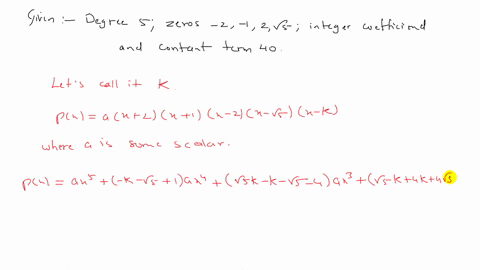 Given :- Degree 5; zeros -2, -1, 2, √5; integer coefficiend
and contant term 40.
Let's call it K
p(x) = a(x+2)(x+1)(x-2)(x-√5)(x-k)
where a is some scalar.
p(x) = ax⁵ + (-k-√5+1)ax⁴ + (√5k-k-√5-4)ax³ + (√5k+4k+4√5